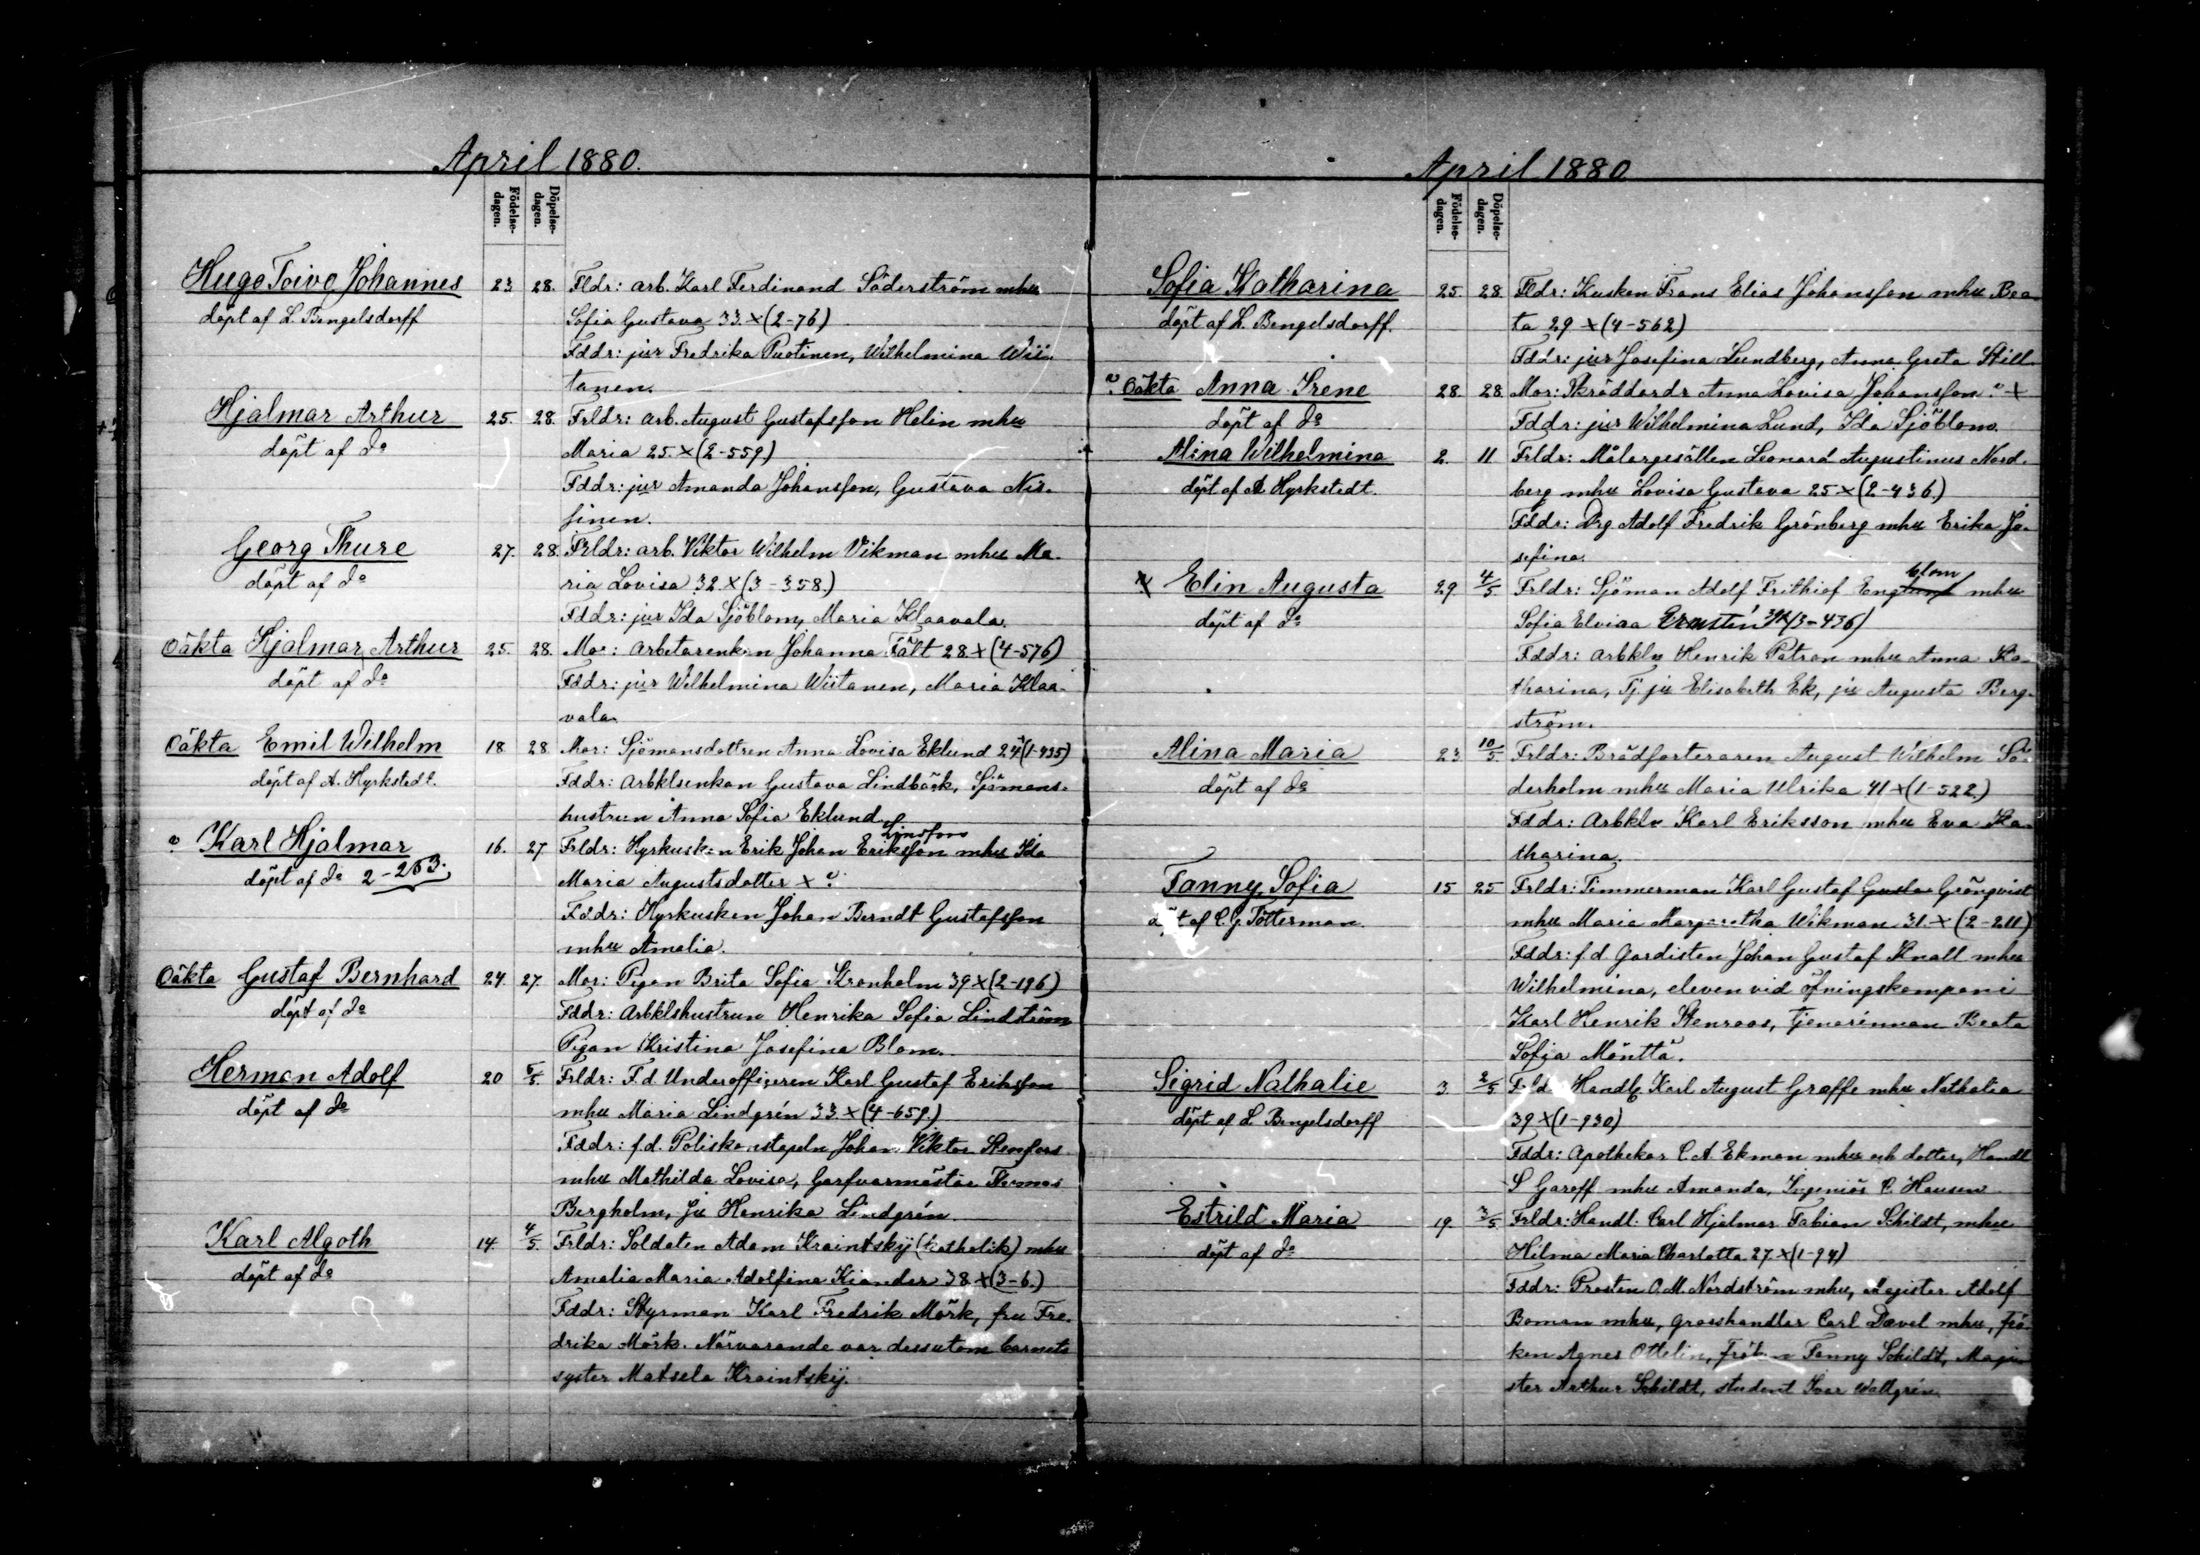 April 1880.
Födelse-dagen.
Döpelse-dagen.
Hugo Toivo Johannes 23 28. Fldr: arb. Karl Ferdinand Söderström mhu
döpt af L Bengelsdorff Sofia Gustava 33 x (2-76)
Fddr: jur Fredrika Puotinen, Wilhelmina Wii-
tanen.
Hjalmar Arthur 25. 28. Frldr: arb. August Gustafsson Helin mhu
döpt af do Maria 25 x (2-559)
Fddr: jur Amanda Johansson, Gustava Nis-
sinen.
Georg Thure 27. 28. Frldr: arb. Viktor Wilhelm Vikman mhu Ma-
döpt af do ria Lovisa 32 x (3-358.)
Fddr: jur Ida Sjöblom, Maria Klaavala.
Oäkta Hjalmar Arthur 25. 28. Mor: Arbetarenkan Johanna Fält 28 x (4-576)
döpt af do Fddr: jur Wilhelmina Wiitanen, Maria Klaa-
vala.
Oäkta Emil Wilhelm 18 28 Mor: Sjömansdottren Anna Lovisa Eklund 24 x (1-935)
döpt af A. Hyrkstedt. Fddr: Arbklsenkan Gustava Lindbäck, Sjömans-
hustrun Anna Sofia Eklund
Karl Hjalmar 16. 27 Frldr: Hyrkusken Erik Johan Eriksson mhu Ida
döpt af do 2-263. Maria Augustsdotter x
Fddr: Hyrkusken Johan Berndt Gustafsson
mhu Amalia.
Oäkta Gustaf Bernhard 24. 27. Mor: Pigan Brita Sofia Kronholm 39 x (2-196)
döpt af do Fddr: Arbklshustrun Henrika Sofia Lindström
Pigan Kristina Josefina Blom.
Herman Adolf 20 5/5. Frldr: F d Underofficeren Karl Gustaf Eriksson
döpt af do mhu Maria Lindgrén 33 x (4-659.)
Fddr: f.d. Poliskonstapeln Johan Viktor Stenfors
mhu Mathilda Lovisa, Garfvarmästar Thomas
Bergholm, Ju Henrika Lindgrén
Karl Algoth 14. 4/5. Frldr: Soldaten Adam Kraintskij (katholik) mhu
döpt af do Amalia Maria Adolfina Kiander 38 x (3-6.)
Fddr: Styrman Karl Fredrik Mörk, fru Fre-
drika Mörk. Närvarande var dessutom barnets
syster Matsela Kraintskij.
April 1880
Födelse-dagen.
Döpelse-dagen.
Sofia Katharina 25. 28. Fldr: Kusken Frans Elias Johansson mhu Bea-
döpt af L. Bengelsdorff. ta 29 x (4-562)
Fddr: jur Josefina Lundberg, Anna Greta Still
Oäkta Anna Irene 28. 28 Mor: Skräddardr Anna Lovisa Johansson x
döpt af do Fddr: jur Wilhelmina Lund, Ida Sjöblom.
Alina Wilhelmina 2. 11 Frldr: Målargesällen Leonard Augustinus Nord-
döpt af A Hyrkstedt. berg mhu Lovisa Gustava 25 x (2-436.)
Fddr: Drg Adolf Fredrik Grönberg mhu Erika Jo-
sefina.
Elin Augusta 29 4/5 Frldr: Sjöman Adolf Frithiof Englund blom mhu
döpt af do Sofia Elviaa (3-436)
Fddr: arbklr Henrik Patron mhu Anna Ka-
tharina, Tj. ju Elisabeth Ek, ju Augusta Berg-
ström.
Alina Maria 23 10/5. Frldr: Brädsorteraren August Wilhelm Sö-
döpt af do derholm mhu Maria Ulrika 41 x (1-522.)
Fddr: Arbklr Karl Eriksson mhu Eva Ka-
tharina.
Fanny Sofia 15 25 Frldr: Timmerman Karl Gustaf Gustav Grönqvist
döpt af C.G. Tötterman. mhu Maria Margaretha Wikman 31. x (2-211)
Fddr: f d Gardisten Johan Gustaf Knall mhu
Wilhelmina, eleven vid öfningskompani
Karl Henrik Stenroos, tjenarinnan Beata
Sofia Mänttä.
Sigrid Nathalie 3. 2/5 Frld Handl. Karl August Graeffe mhu Nathalia
döpt af L Bengelsdorff 39 x (1-930)
Fddr: Apothekar C.A. Ekman mhu och dotter, Handl
S Garoff mhu Amanda, Ingeniör C. Hausen
Estrild Maria 19. 3/5 Frldr: Handl. Carl Hjalmar Fabian Schildt, mhu
döpt af do Hilma Maria Charlotta 27 x (1-94)
Fddr: Prosten O.M. Nordström mhu, Magister Adolf
Boman mhu, grosshandlar Carl Dævel mhu, frö-
ken Agnes Ottelin, fröken Fanny Schildt, Magi-
ster Arthur Schildt, student Ivar Wallgrén.